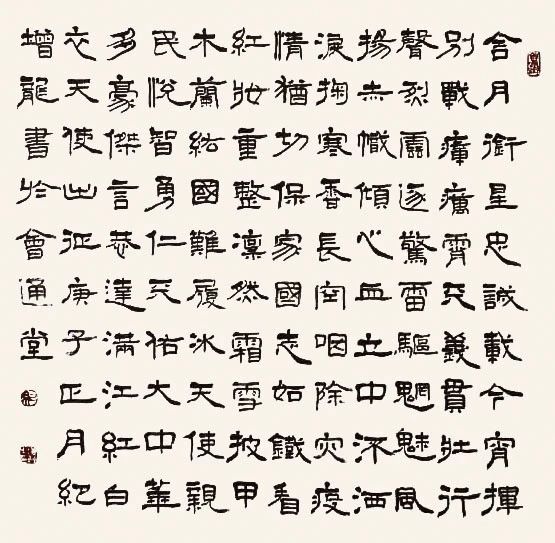 含月銜星忠誠載今宵揮
别戰瘴癘霄天義貫壮行
聲烈逐驚雷驅魍魅風
揚赤幟傾心血立中流洒
淚掬寒香長空咽除災疫
情猶切保家國志如鐵看
紅妝重整凜然霜雪披甲
木蘭紓國難履冰天使親
民悦智勇仁天佑大中華
多豪傑言恭達滿江紅白
衣天使出征庚子正月紀
增龍書於會通堂